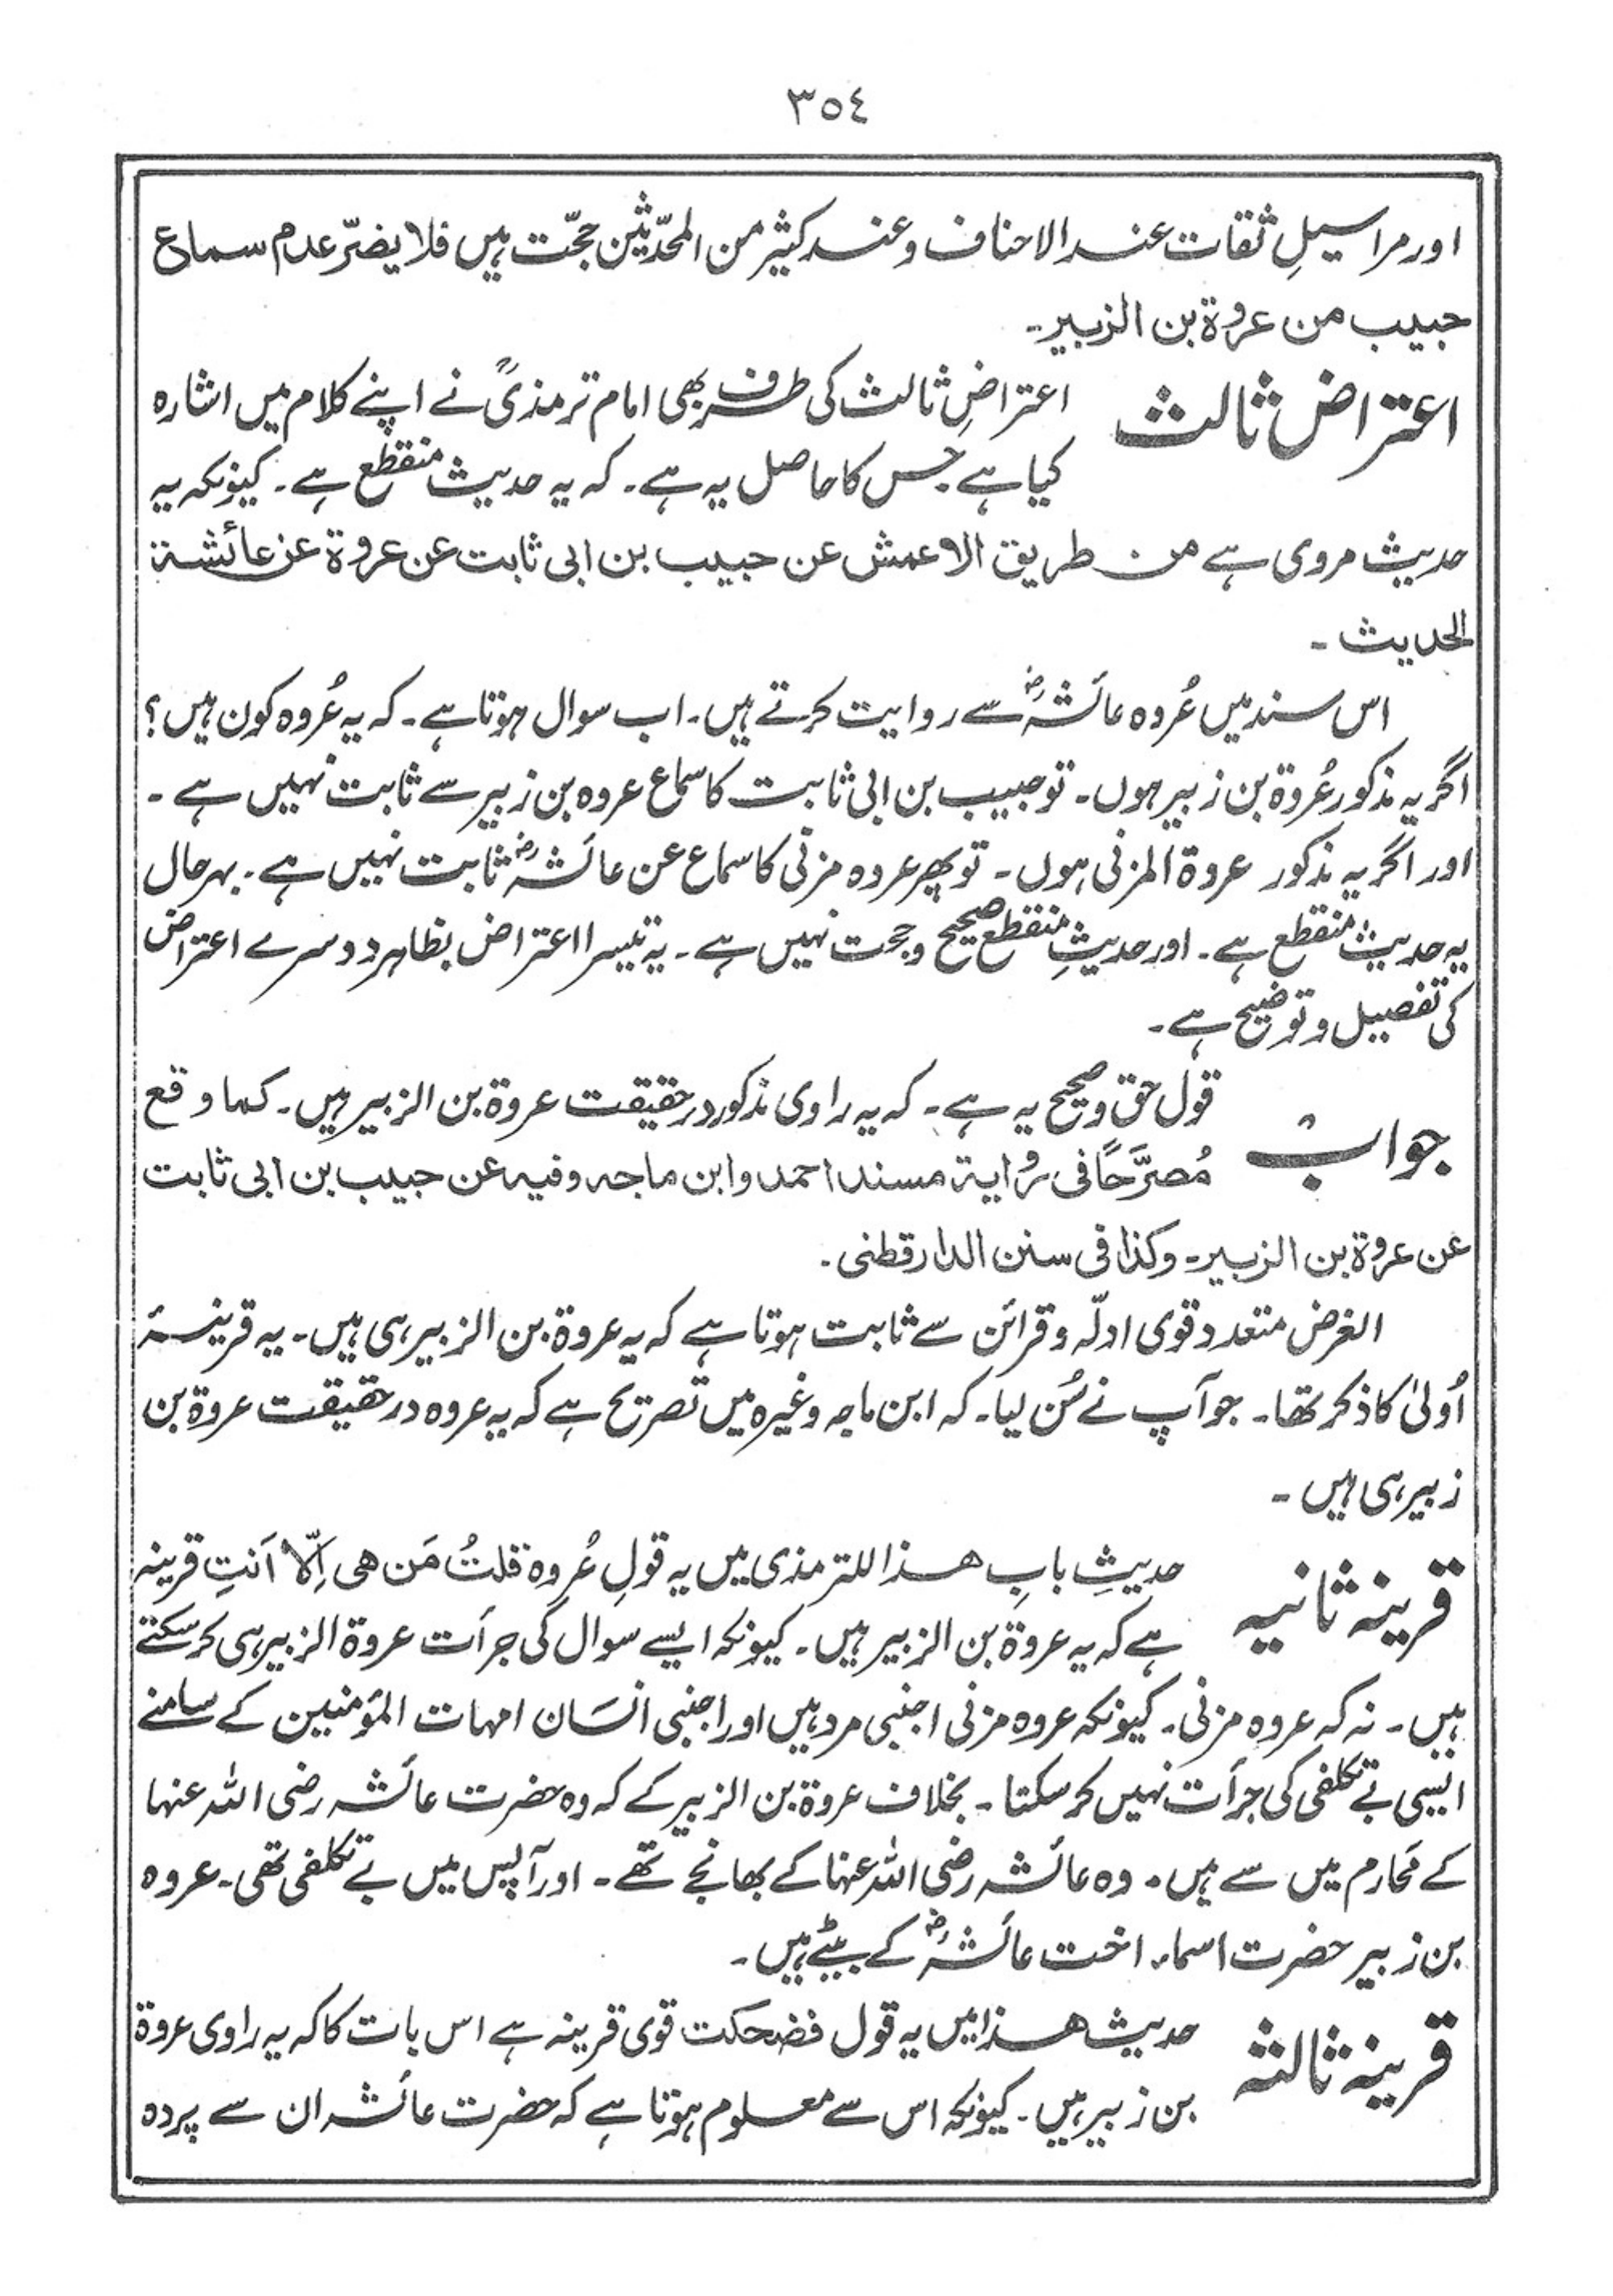 ٣٥٤
اور مراسیلِ ثقات عند الاحناف و عند کثیر من المحدّثین حجّت ہیں فلا یضرّ عدم سماع
حبیب من عروۃ بن الزبیر۔
اعتراض ثالث
اعتراضِ ثالث کی طرف بھی امام ترمذیؒ نے اپنے کلام میں اشارہ
کیا ہے جس کا حاصل یہ ہے۔ کہ یہ حدیث منقطع ہے۔ کیونکہ یہ
حدیث مروی ہے من طریق الاعمش عن حبیب بن ابی ثابت عن عروۃ عن عائشۃ
الحدیث ۔
اس سند میں عُروہ عائشہؓ سے روایت کرتے ہیں۔ اب سوال ہوتا ہے۔ کہ یہ عُروہ کون ہیں؟
اگر یہ مذکور عُروۃ بن زبیر ہوں۔ تو حبیب بن ابی ثابت کا سماع عروہ بن زبیر سے ثابت نہیں ہے ۔
اور اگر یہ مذکور عروۃ المزنی ہوں۔ تو پھر عروہ مزنی کا سماع عن عائشہؓ ثابت نہیں ہے۔ بہرحال
یہ حدیث منقطع ہے۔ اور حدیثِ منقطع صحیح و حجت نہیں ہے۔ یہ تیسرا اعتراض بظاہر دوسرے اعتراض
کی تفصیل و توضیح ہے۔
جواب
قول حق و صحیح یہ ہے۔ کہ یہ راوی مذکور درحقیقت عروۃ بن الزبیر ہیں۔ کما وقع
مُصرَّحًا فی روایۃ مسند احمد و ابن ماجہ و فیہ عن حبیب بن ابی ثابت
عن عروۃ بن الزبیر۔ و کذا فی سنن الدارقطنی۔
الغرض متعدد قوی ادلّہ و قرائن سے ثابت ہوتا ہے کہ یہ عروۃ بن الزبیر ہی ہیں۔ یہ قرینۂ
اُولیٰ کا ذکر تھا۔ جو آپ نے سُن لیا۔ کہ ابن ماجہ وغیرہ میں تصریح ہے کہ یہ عروہ درحقیقت عروۃ بن
زبیر ہی ہیں ۔
قرینہ ثانیہ
حدیثِ بابِ ھذا للترمذی میں یہ قولِ عُروہ قلتُ مَن ھی اِلّا اَنتِ قرینہ
ہے کہ یہ عروۃ بن الزبیر ہیں۔ کیونکہ ایسے سوال کی جرأت عروۃ الزبیر ہی کرسکتے
ہیں۔ نہ کہ عروہ مزنی۔ کیونکہ عروہ مزنی اجنبی مرد ہیں اور اجنبی انسَان امہات المؤمنین کے سامنے
ایسی بے تکلفی کی جرأت نہیں کرسکتا ۔ بخلاف عروۃ بن الزبیر کے کہ وہ حضرت عائشہ رضی اللہ عنہا
کے مَحارم میں سے ہیں۔ وہ عائشہ رضی اللہ عنہا کے بھانجے تھے۔ اور آپس میں بے تکلفی تھی۔ عروہ
بن زبیر حضرت اسماء اخت عائشہؓ کے بیٹے ہیں۔
قرینہ ثالثہ
حدیث ھذا میں یہ قول فضحکت قوی قرینہ ہے اس بات کا کہ یہ راوی عروۃ
بن زبیر ہیں۔ کیونکہ اس سے معلوم ہوتا ہے کہ حضرت عائشہ ان سے پردہ